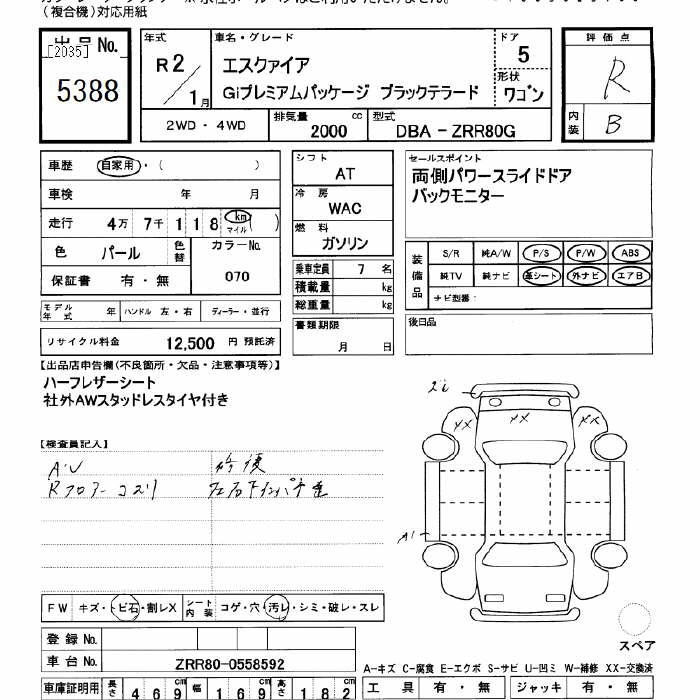 (複合機)対応用紙
出品No.
[2035]
5388
年式
R2/1月
車名・グレード
エスクァイア
Giプレミアムパッケージ ブラックテーラード
ドア
5
形状
ワゴン
評価点
R
内装
B
2WD・4WD
排気量
2000
cc
型式
DBA-ZRR80G
車歴
自家用・( )
車検 年 月
走行 4万 7千 1 1 8 km マイル ( )
色 パール
色替
カラーNo.
070
保証書 有・無
モデル年式 年
ハンドル 左・右
ディーラー・並行
リサイクル料金 12,500 円 預託済
シフト
AT
冷房
WAC
燃料
ガソリン
乗車定員 7 名
積載量 kg
総重量 kg
書類期限
月 日
セールスポイント
両側パワースライドドア
バックモニター
装備品
S/R 純A/W P/S P/W ABS
純TV 純ナビ 革シート 外ナビ エアB
ナビ型番:
後日品
【出品店申告欄(不良箇所・欠品・注意事項等)】
ハーフレザーシート
社外AWスタッドレスタイヤ付き
【検査員記入】
A・U
Rフロアーコスリ
修復
XX
XX
XX
A1
FW キズ・トビ石・割レX
シート内装 コゲ・穴・汚レ・シミ・破レ・スレ
登録No.
車台No. ZRR80-0558592
スペア
A-キズ C-腐食 E-エクボ S-サビ U-凹ミ W-補修 XX-交換済
車庫証明用 長さ 469cm 幅 169cm 高さ 182cm
工具 有・無 ジャッキ 有・無